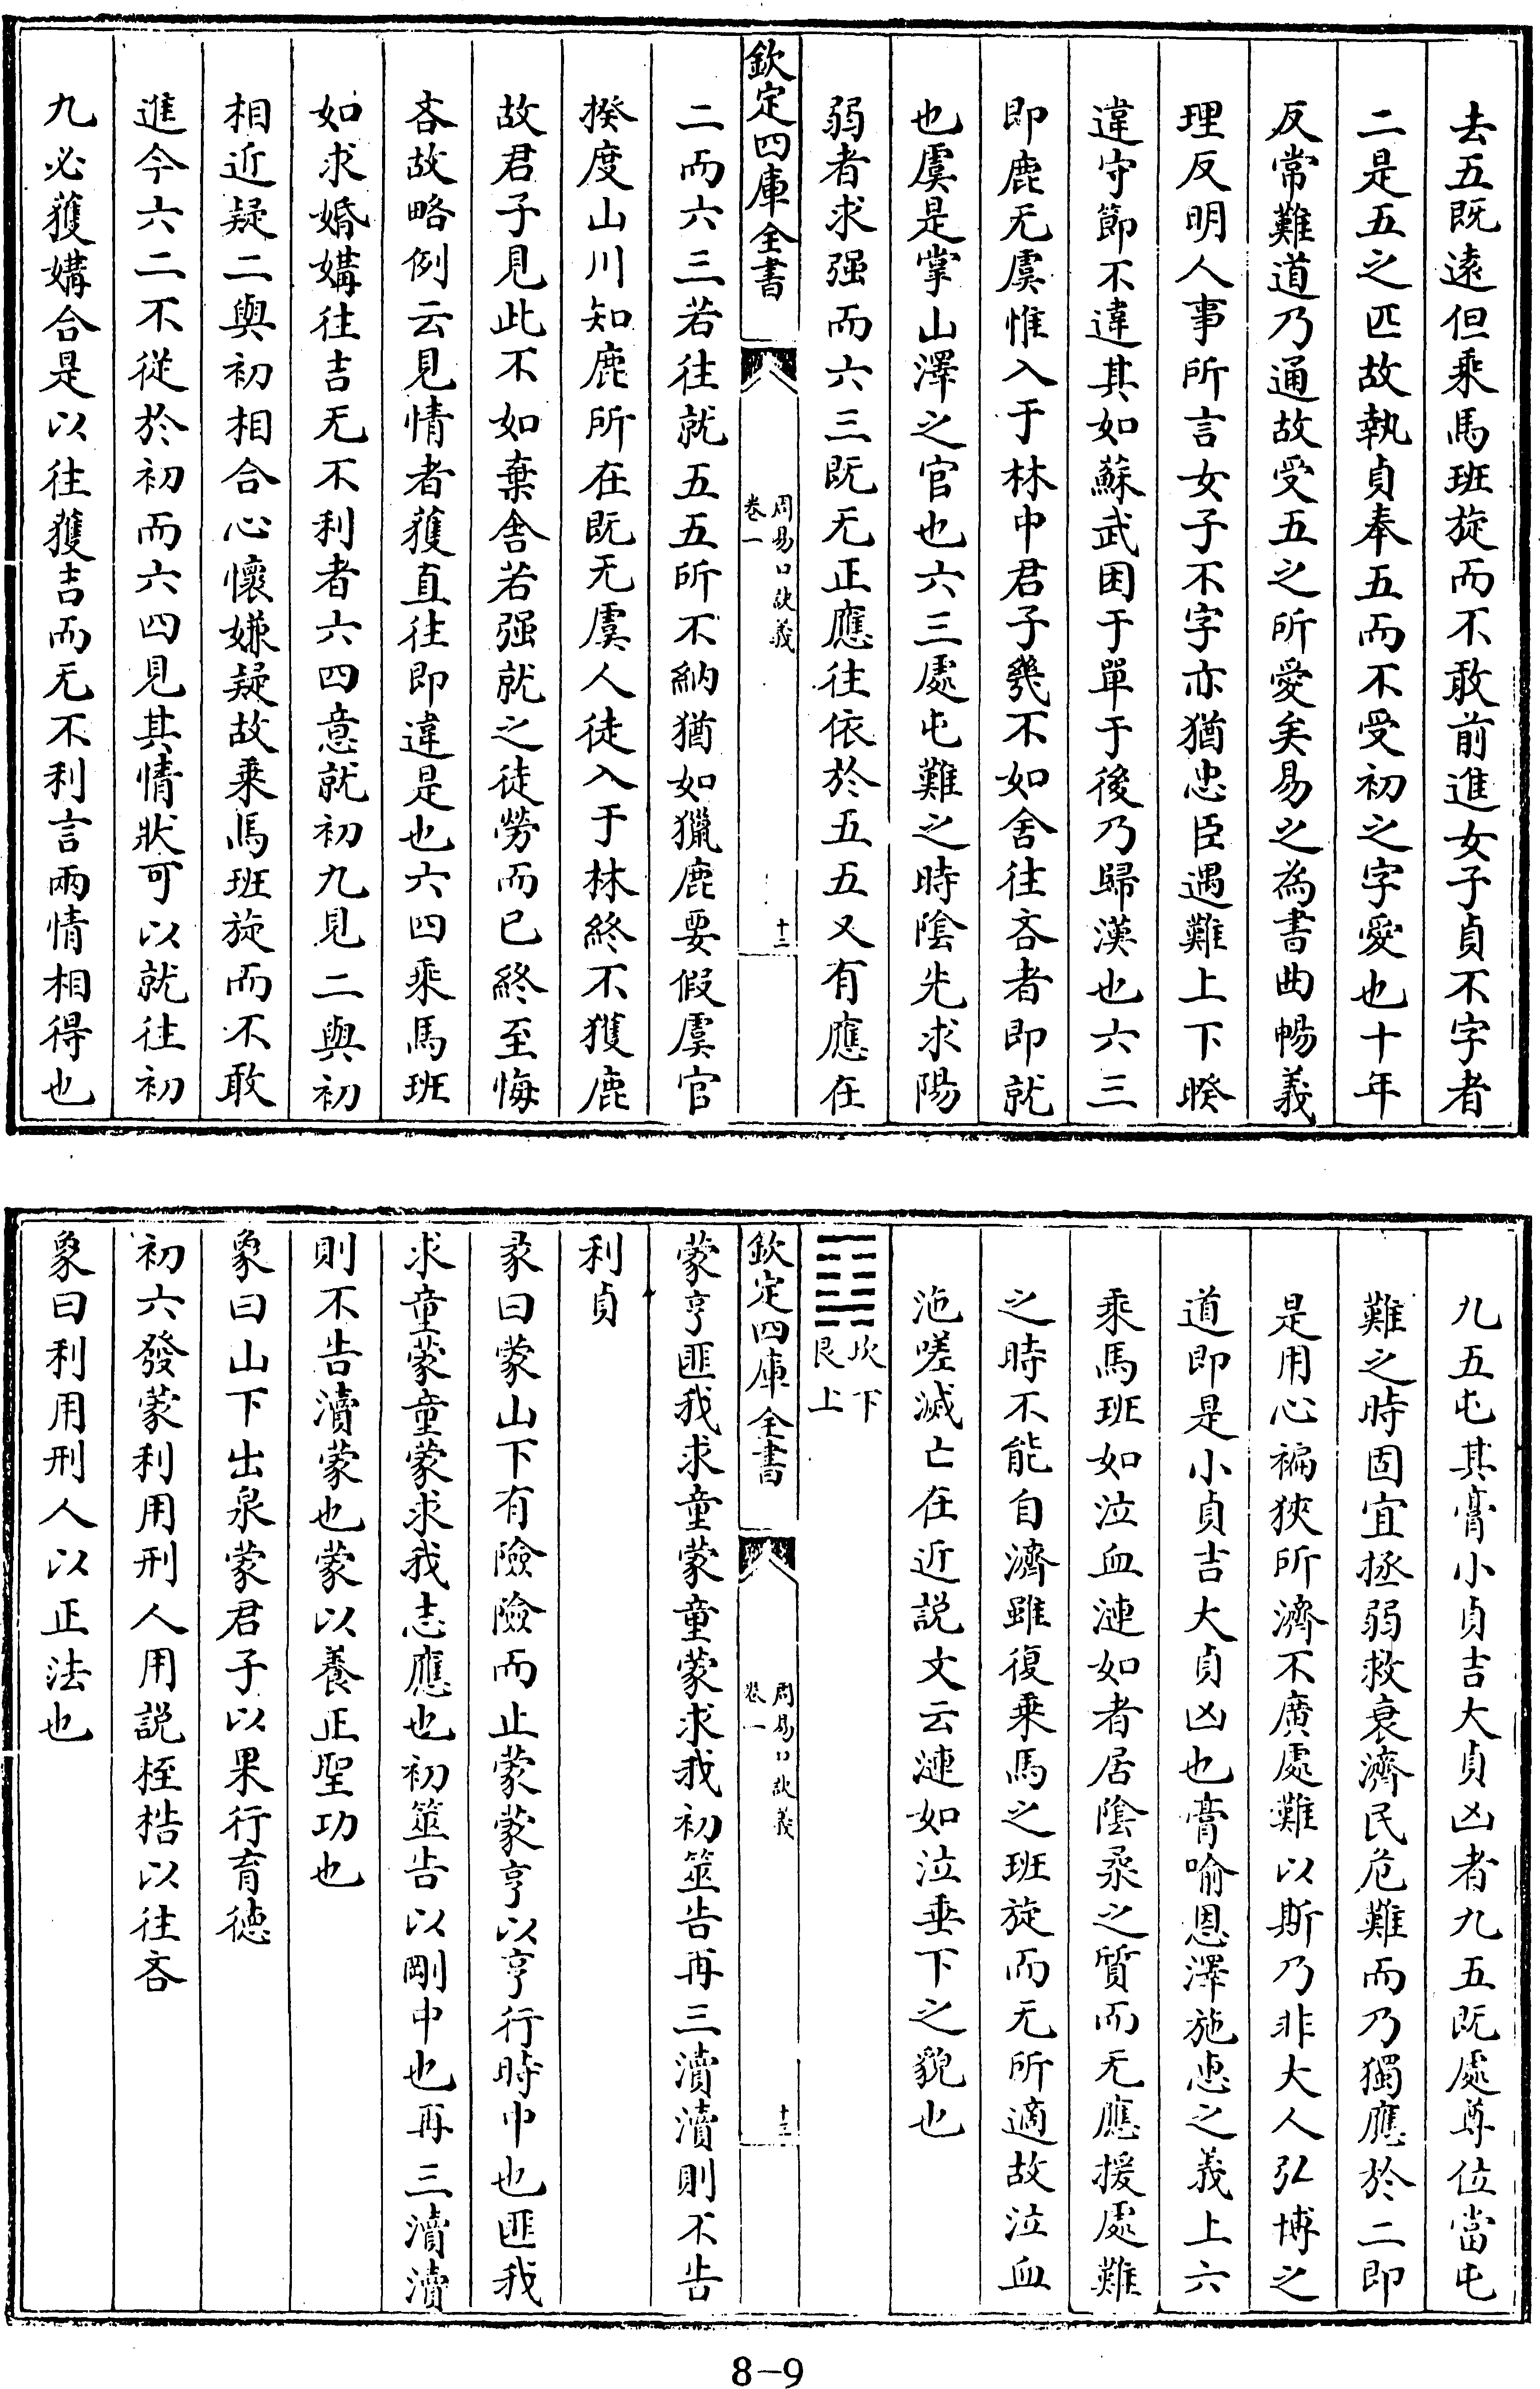 去五既遠但乘馬班旋而不敢前進女子貞不字者
二是五之匹故執貞奉五而不受初之字愛也十年
反常難道乃通故受五之所愛矣易之為書曲暢義
理反明人事所言女子不字亦猶忠臣遇難上下暌
違守節不違其如蘇武困于單于後乃歸漢也六三
即鹿无虞惟入于林中君子幾不如舍往吝者即就
也虞是掌山澤之官也六三處屯難之時陰先求陽
弱者求强而六三既无正應往依於五五又有應在
欽定四庫全書
周易口訣義
卷一
十二
二而六三若往就五五所不納猶如獵鹿要假虞官
揆度山川知鹿所在既无虞人徒入于林終不獲鹿
故君子見此不如棄舍若强就之徒勞而已終至悔
吝故略例云見情者獲直往即違是也六四乘馬班
如求婚媾往吉无不利者六四意就初九見二與初
相近疑二與初相合心懷嫌疑故乘馬班旋而不敢
進今六二不從於初而六四見其情狀可以就往初
九必獲媾合是以往獲吉而无不利言兩情相得也
九五屯其膏小貞吉大貞凶者九五既處尊位當屯
難之時固宜拯弱救衰濟民危難而乃獨應於二即
是用心褊狹所濟不廣處難以斯乃非大人弘博之
道即是小貞吉大貞凶也膏喻恩澤施惠之義上六
乘馬班如泣血漣如者居陰桼之質而无應援處難
之時不能自濟雖復乘馬之班旋而无所適故泣血
沲嗟滅亡在近説文云漣如泣垂下之貌也
䷃
坎下
艮上
欽定四庫全書
周易口訣義
卷一
十三
蒙亨匪我求童蒙童蒙求我初筮告再三瀆瀆則不告
利貞
彖曰蒙山下有險險而止蒙蒙亨以亨行時中也匪我
求童蒙童蒙求我志應也初筮告以剛中也再三瀆瀆
則不告瀆蒙也蒙以養正聖功也
象曰山下出泉蒙君子以果行育德
初六發蒙利用刑人用説桎梏以往吝
象曰利用刑人以正法也
8-9